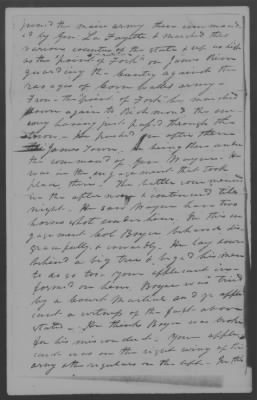 joined the main army then command
ed by Gen. La Fayette & marched thro
various counties of the state & up as high
as the "point of Fork" on James River
guarding the Country against the
ravages of Cornwallis army -
From the "point of Fork" he marched
down again to Richmond the en
emy having just passed through this
town. He pushed on after them
to James Town. He being then under
the command of Gen Wayne. He
was in the engagement that took
place there. The battle commenced
in the afternoon & continued till
night. He saw Wayne have two
horses shot under him. In this en
gagement Col Boyer behaved dis
gracefully & cowardly. He lay down
behind a big tree & beged his men
to do so too. Your applicant in
formed on him. Boyer was tried
by a Court Martial and yr appli
cant a witness of the fact above
stated. He thinks Boyer was broke
for his misconduct. Your appli
cant was on the right wing of the
army & the regulars on the left. In this